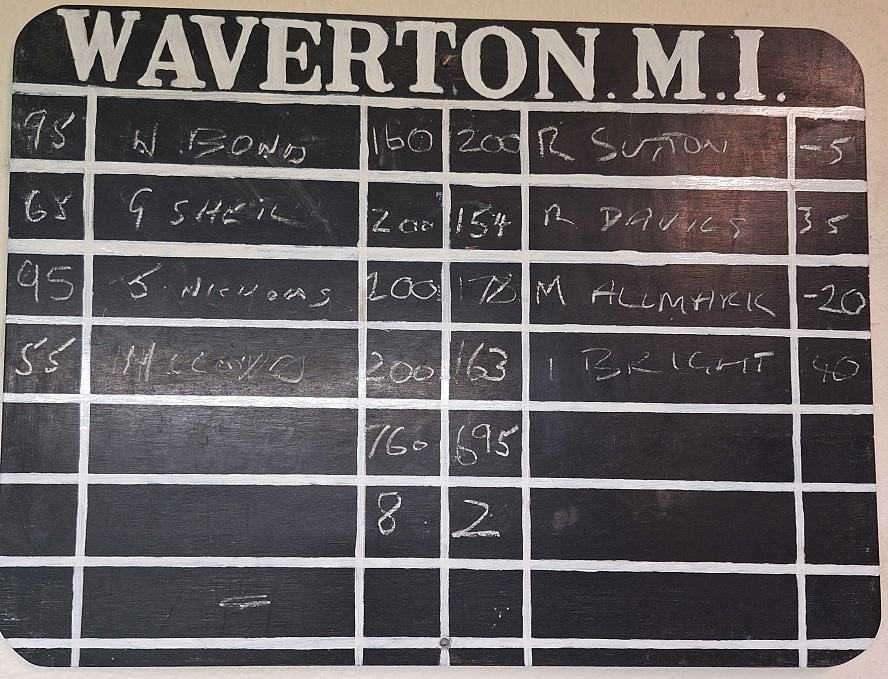 WAVERTON.M.I.
95 W BOND 160 200 R SUTTON -5
65 G SHEIL 200 154 R DAVIES 35
95 S NICHOLAS 200 178 M ALLMARK -20
55 200 163 I BRIGHT 40
760 695
8 2